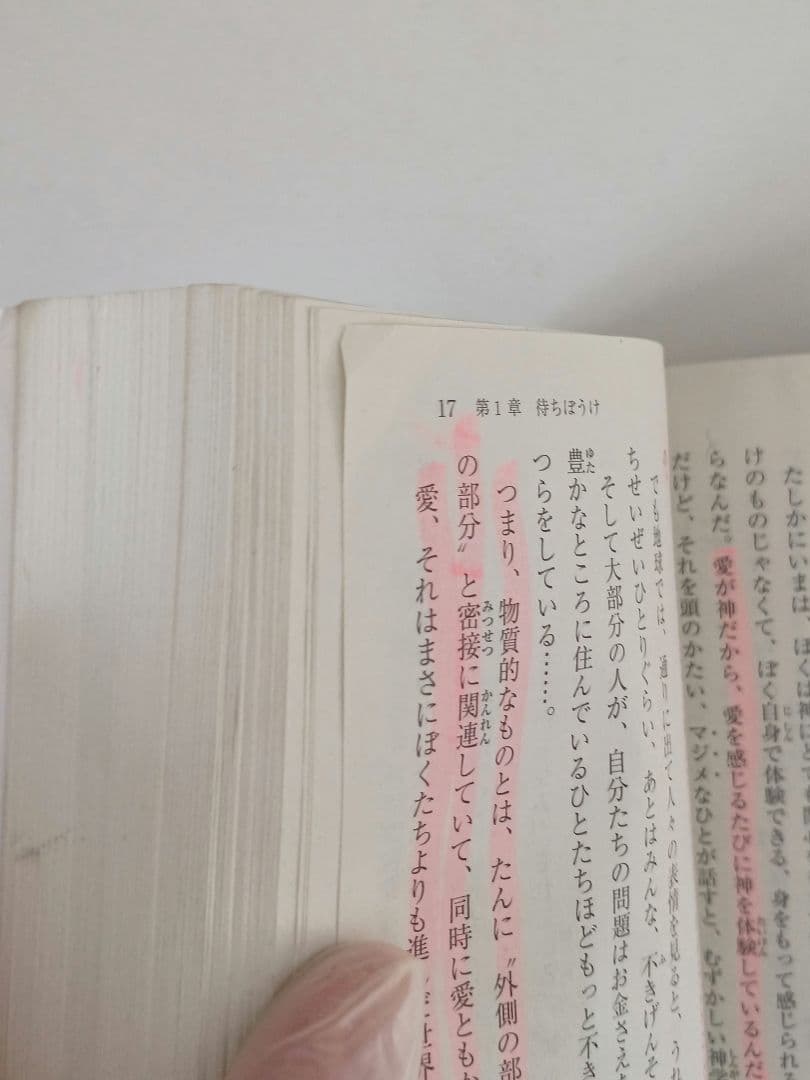 たしかにいまは、ぼくは神に
けのものじゃなくて、ぼく自身で体験できる、身をもって感じられる
らなんだ。愛が神だから、愛を感じるたびに神を体験しているんだ
だけど、それを頭のかたい、マジメなひとが話すと、むずかしい神学
17 第1章 待ちぼうけ
でも地球では、通りに出て人々の表情を見ると、うれ
ちせいぜいひとりぐらい、あとはみんな、不きげんそ
そして大部分の人が、自分たちの問題はお金さえ
豊かなところに住んでいるひとたちほどもっと不き
つらをしている……。
つまり、物質的なものとは、たんに〝外側の部
の部分〟と密接に関連していて、同時に愛とも
愛、それはまさにぼくたちよりも進
世界